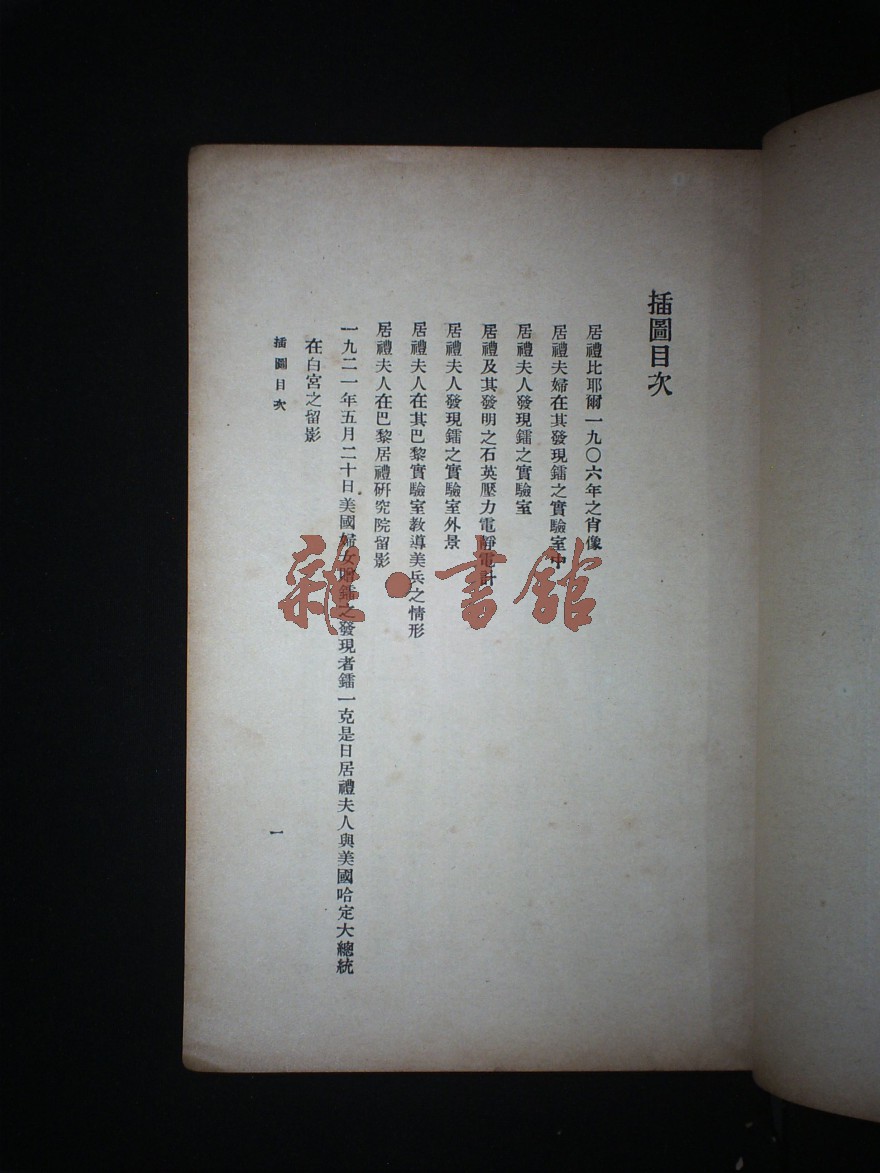 插圖目次
居禮比耶爾一九〇六年之肖像
居禮夫婦在其發現鐳之實驗室中
居禮夫人發現鐳之實驗室
居禮及其發明之石英壓力電靜電計
居禮夫人發現鐳之實驗室外景
居禮夫人在其巴黎實驗室教導美兵之情形
居禮夫人在巴黎居禮研究院留影
一九二一年五月二十日美國婦女贈鐳之發現者鐳一克是日居禮夫人與美國哈定大總統
在白宮之留影
插圖目次
一
雜·書館